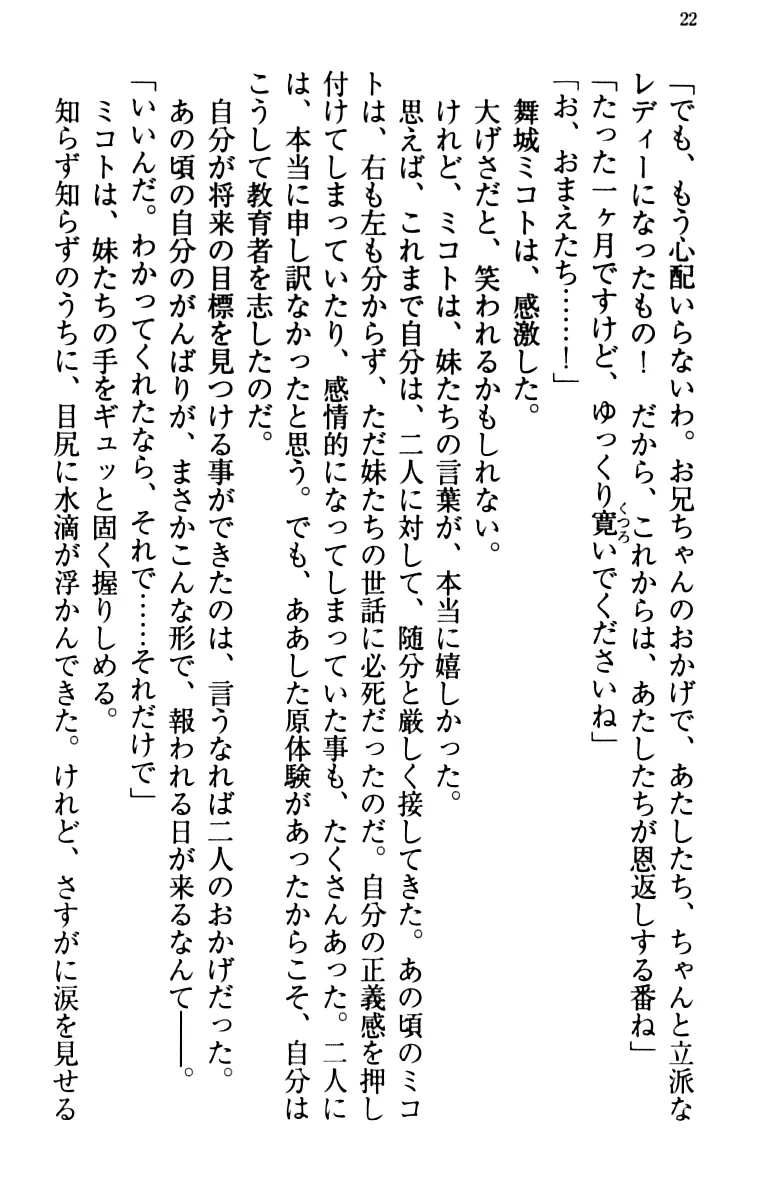 22
「でも、もう心配いらないわ。お兄ちゃんのおかげで、あたしたち、ちゃんと立派な
レディーになったもの！　だから、これからは、あたしたちが恩返しする番ね」
「たった一ヶ月ですけど、ゆっくり寛いでくださいね」
くつろ
「お、おまえたち……！」
舞城ミコトは、感激した。
大げさだと、笑われるかもしれない。
けれど、ミコトは、妹たちの言葉が、本当に嬉しかった。
思えば、これまで自分は、二人に対して、随分と厳しく接してきた。あの頃のミコ
トは、右も左も分からず、ただ妹たちの世話に必死だったのだ。自分の正義感を押し
付けてしまっていたり、感情的になってしまっていた事も、たくさんあった。二人に
は、本当に申し訳なかったと思う。でも、ああした原体験があったからこそ、自分は
こうして教育者を志したのだ。
自分が将来の目標を見つける事ができたのは、言うなれば二人のおかげだった。
あの頃の自分のがんばりが、まさかこんな形で、報われる日が来るなんて――。
「いいんだ。わかってくれたなら、それで……それだけで」
ミコトは、妹たちの手をギュッと固く握りしめる。
知らず知らずのうちに、目尻に水滴が浮かんできた。けれど、さすがに涙を見せる